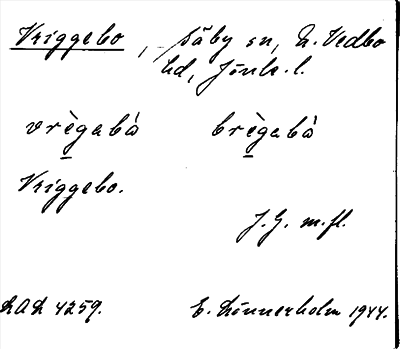 Vriggebo, Säby sn, N. Vedbo
hd, Jönk. l.
vrègabà brègabà
Vriggebo.
J. G. m. fl.
LAL 4259. E. Lönnerholm 1944.